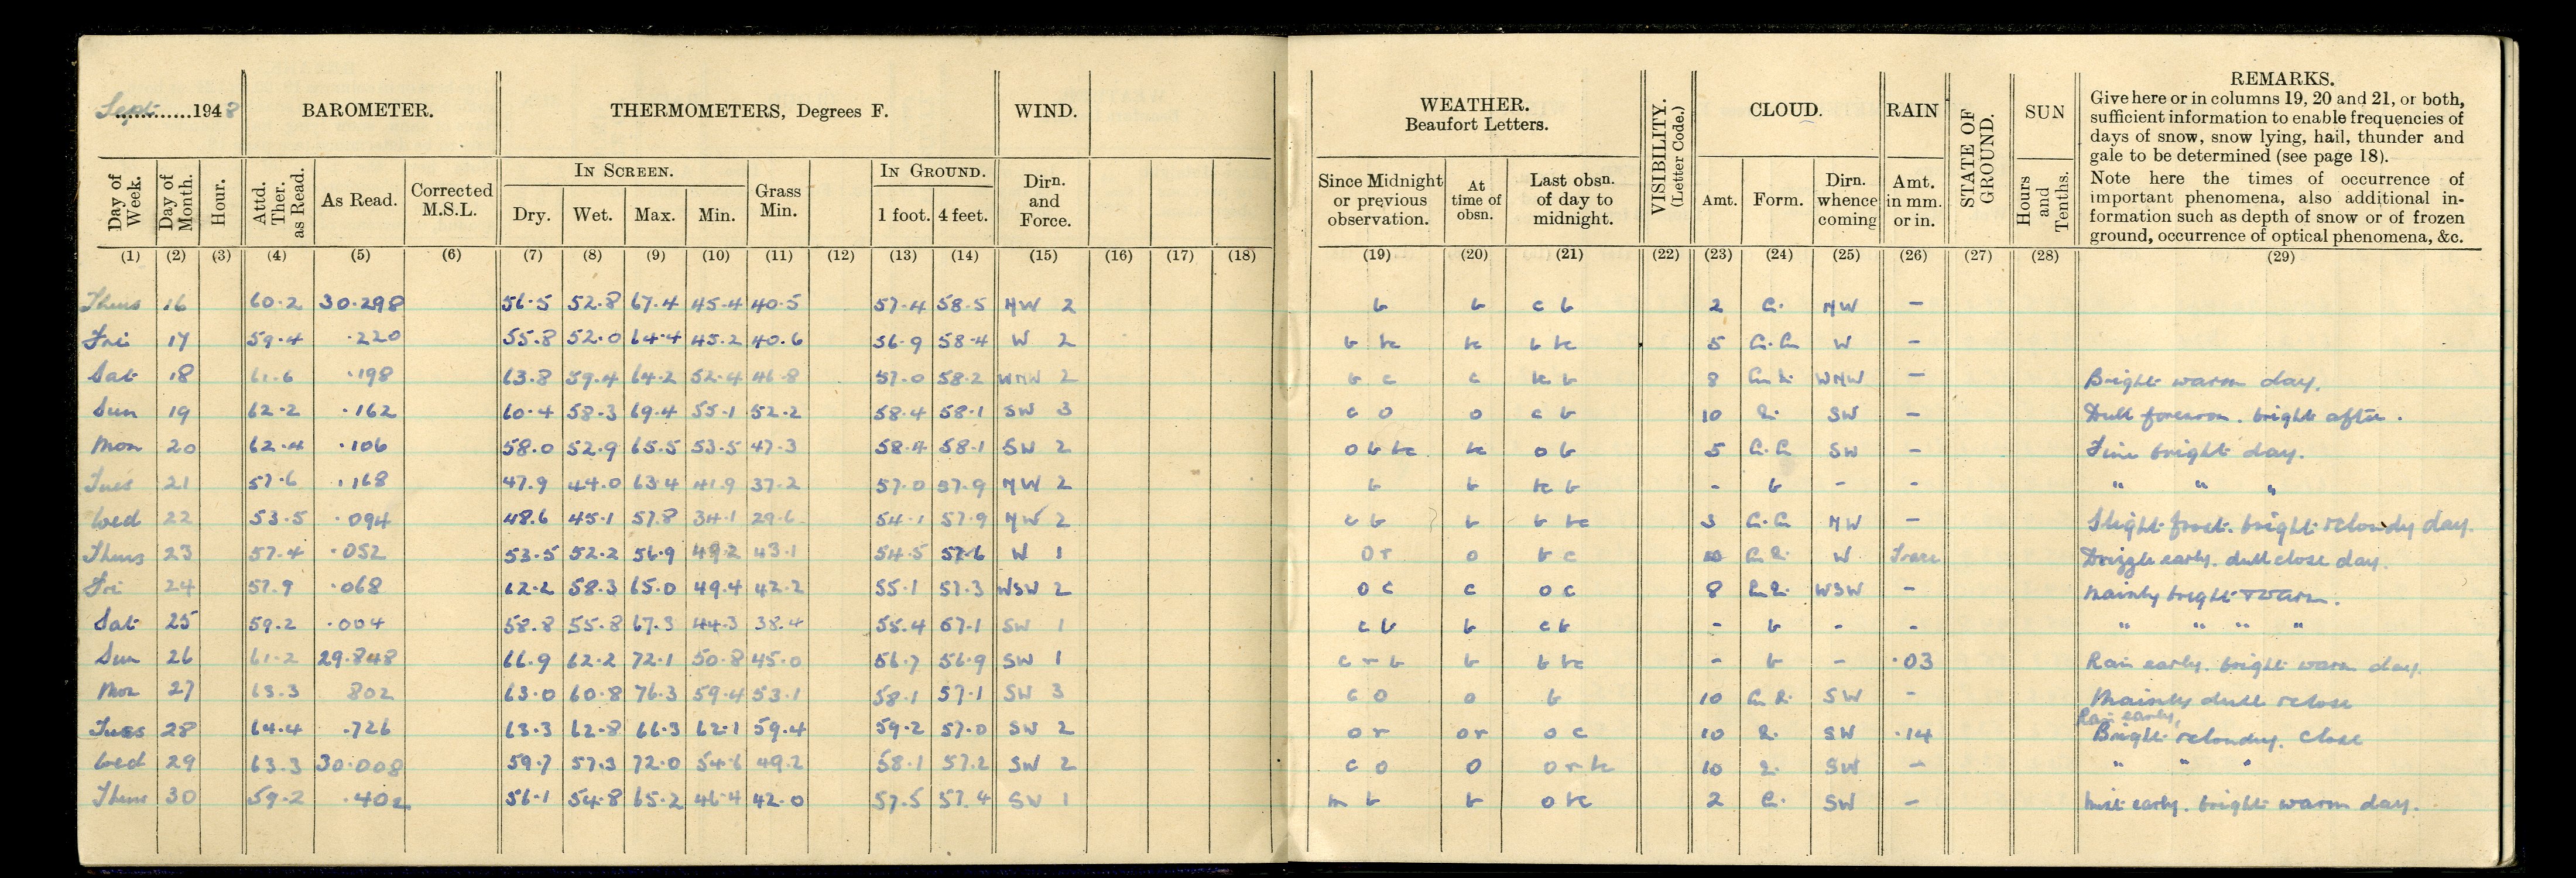 Sept. 1948
BAROMETER.
THERMOMETERS, Degrees F.
WIND.
WEATHER.
Beaufort Letters.
VISIBILITY.
(Letter Code.)
CLOUD.
RAIN
STATE OF GROUND.
SUN
REMARKS.
Give here or in columns 19, 20 and 21, or both,
sufficient information to enable frequencies of
days of snow, snow lying, hail, thunder and
gale to be determined (see page 18).
Note here the times of occurrence of
important phenomena, also additional in-
formation such as depth of snow or of frozen
ground, occurrence of optical phenomena, &c.
Day of Week.
Day of Month.
Hour.
Attd. Ther. as Read.
As Read.
Corrected M.S.L.
IN SCREEN.
Dry. Wet. Max. Min.
Grass Min.
IN GROUND.
1 foot. 4 feet.
Dirn. and Force.
Since Midnight or previous observation.
At time of obsn.
Last obsn. of day to midnight.
Amt. Form. Dirn. whence coming
Amt. in mm. or in.
Hours and Tenths.
(1) (2) (3) (4) (5) (6) (7) (8) (9) (10) (11) (12) (13) (14) (15) (16) (17) (18) (19) (20) (21) (22) (23) (24) (25) (26) (27) (28) (29)
Thurs 16 60.2 30.298 56.5 52.8 67.4 45.4 40.5 57.4 58.5 NW 2 b b c b 2 C. NW -
Fri 17 59.4 .220 55.8 52.0 64.4 45.2 40.6 56.9 58.4 W 2 b bc bc b bc 5 W -
Sat 18 61.6 .198 63.8 59.4 64.2 52.4 46.8 57.0 58.2 WNW 2 b c c bc b 8 WNW - Bright warm day.
Sun 19 62.2 .162 60.4 58.3 69.4 55.1 52.2 58.4 58.1 SW 3 c o o c b 10 SW - Dull forenoon. bright after.
Mon 20 62.4 .106 58.0 52.9 65.5 53.5 47.3 58.4 58.1 SW 2 o b bc bc o b 5 SW - Fine bright day.
Tues 21 57.6 .168 47.9 44.0 63.4 41.9 37.2 57.0 57.9 NW 2 b b bc b - b - - " " "
Wed 22 53.5 .094 48.6 45.1 57.8 34.1 29.6 54.1 57.9 NW 2 c b b b bc 3 NW - Slight frost. bright & cloudy day.
Thurs 23 57.4 .052 53.5 52.2 56.9 49.2 43.1 54.5 57.6 W 1 o r o b c 10 W Trace Drizzle early. dull close day.
Fri 24 57.9 .068 62.2 58.3 65.0 49.4 42.2 55.1 57.3 WSW 2 o c c o c 8 WSW - Mainly bright & warm.
Sat 25 59.2 .004 58.8 55.8 67.3 44.3 38.4 55.4 57.1 SW 1 c b b c b - b - - " " " "
Sun 26 61.2 29.848 66.9 62.2 72.1 50.8 45.0 56.7 56.9 SW 1 c r b b b bc - b - .03 Rain early. bright warm day.
Mon 27 63.3 802 63.0 60.8 76.3 59.4 53.1 58.1 57.1 SW 3 c o o b 10 SW - Mainly dull & close
Rain early,
Tues 28 64.4 .726 63.3 62.8 66.3 62.1 59.4 59.2 57.0 SW 2 o r o r o c 10 SW .14 Bright & cloudy. Close
Wed 29 63.3 30.008 59.7 57.3 72.0 54.6 49.2 58.1 57.2 SW 2 c o o o r bc 10 SW - " " "
Thurs 30 59.2 .402 56.1 54.8 65.2 46.4 42.0 57.5 57.4 SW 1 m b b o bc 2 C. SW - Mist early. bright warm day.